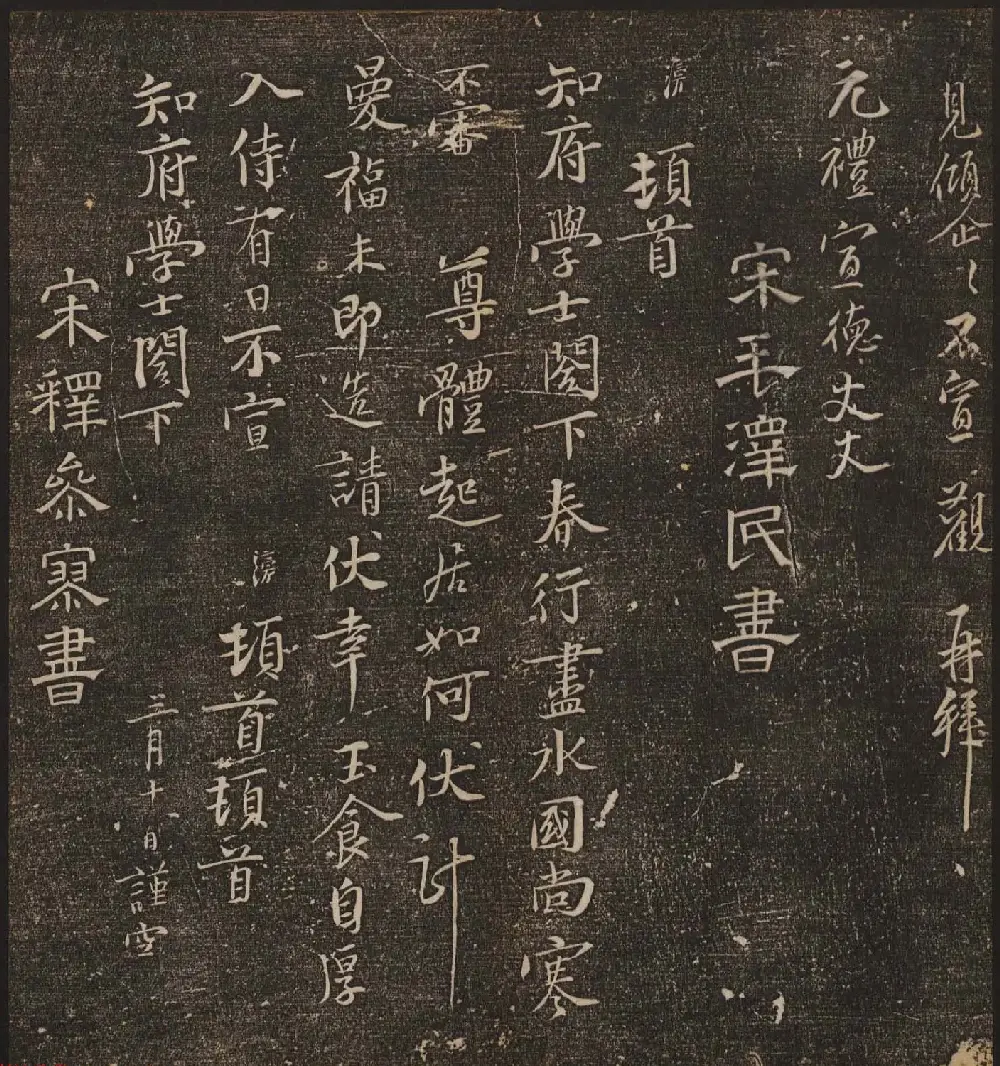 見傾企〻不宣 觀 再拜
元禮宣德丈丈
宋毛澤民書
滂 頓首
知府學士閤下春行盡水國尚寒
不審 尊體起居如何伏計
曼福未即造請伏幸 玉食自厚
入侍有日不宣 滂 頓首頓首
知府學士閤下 三月十日謹空
宋釋參寥書